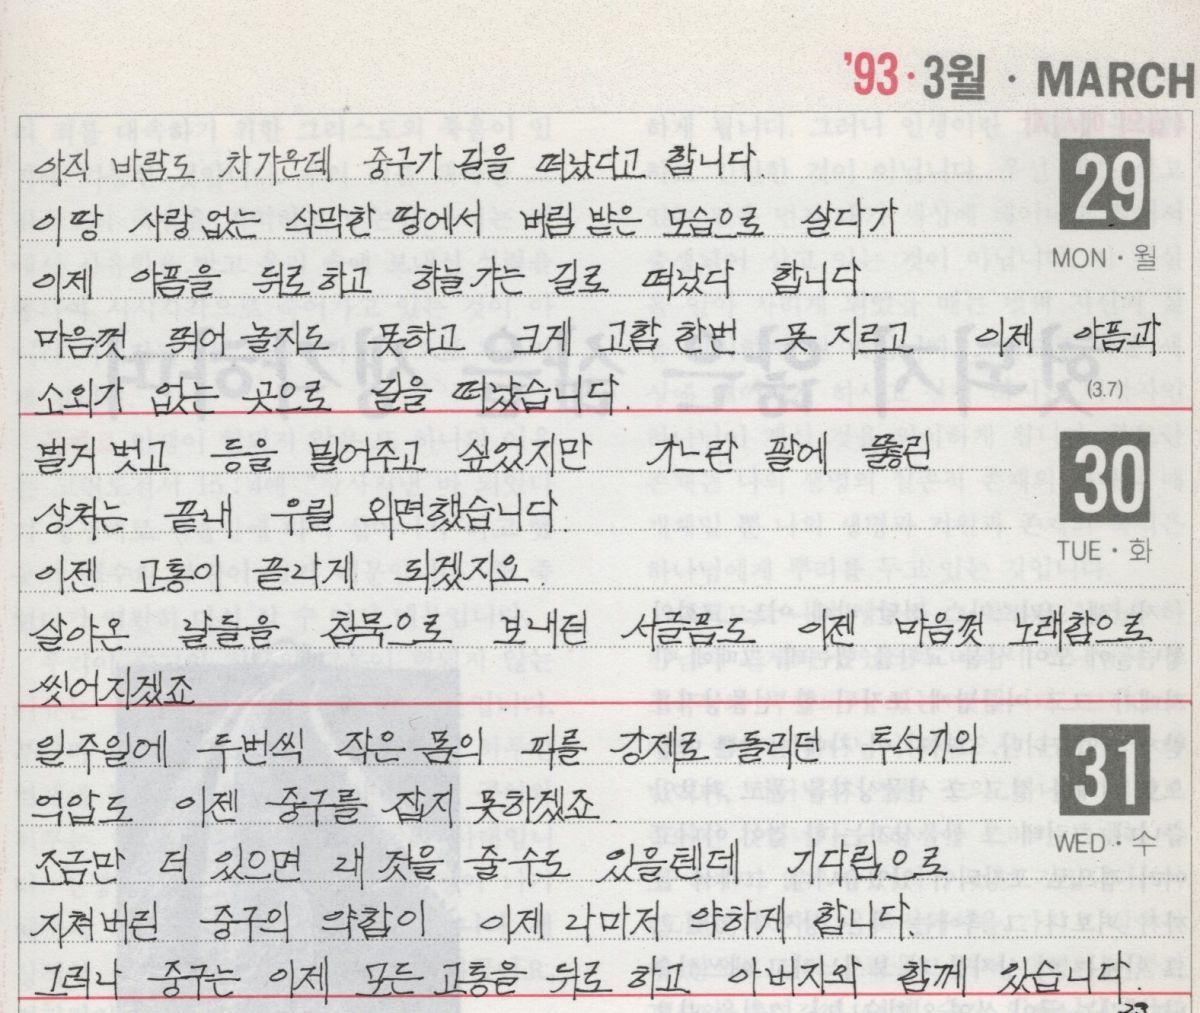 '93·3월·MARCH
아직 바람도 차가운데 중구가 길을 떠났다고 합니다
29
이 땅 사랑 없는 삭막한 땅에서 버림 받은 모습으로 살다가
MON·월
이제 아픔을 뒤로하고 하늘 가는 길로 떠났다 합니다
마음껏 뛰어 놀지도 못하고 크게 고함 한번 못 지르고 이제 아픔과
(3.7)
소외가 없는 곳으로 길을 떠났습니다.
벌거 벗고 등을 밀어주고 싶었지만 가느란 팔에 뚫린
30
상처는 끝내 우릴 외면했습니다
TUE·화
이젠 고통이 끝나게 되겠지요.
살아온 날들을 침묵으로 보내던 서글픔도 이젠 마음껏 노래함으로
씻어지겠죠
일주일에 두번씩 작은 몸의 피를 강제로 돌리던 투석기의
31
억압도 이젠 중구를 잡지 못하겠죠.
WED·수
조금만 더 있으면 내 것을 줄 수도 있을텐데 기다림으로
지쳐버린 중구의 약함이 이제 나마저 약하게 합니다.
그러나 중구는 이제 모든 고통을 뒤로 하고 아버지와 함께 있습니다.